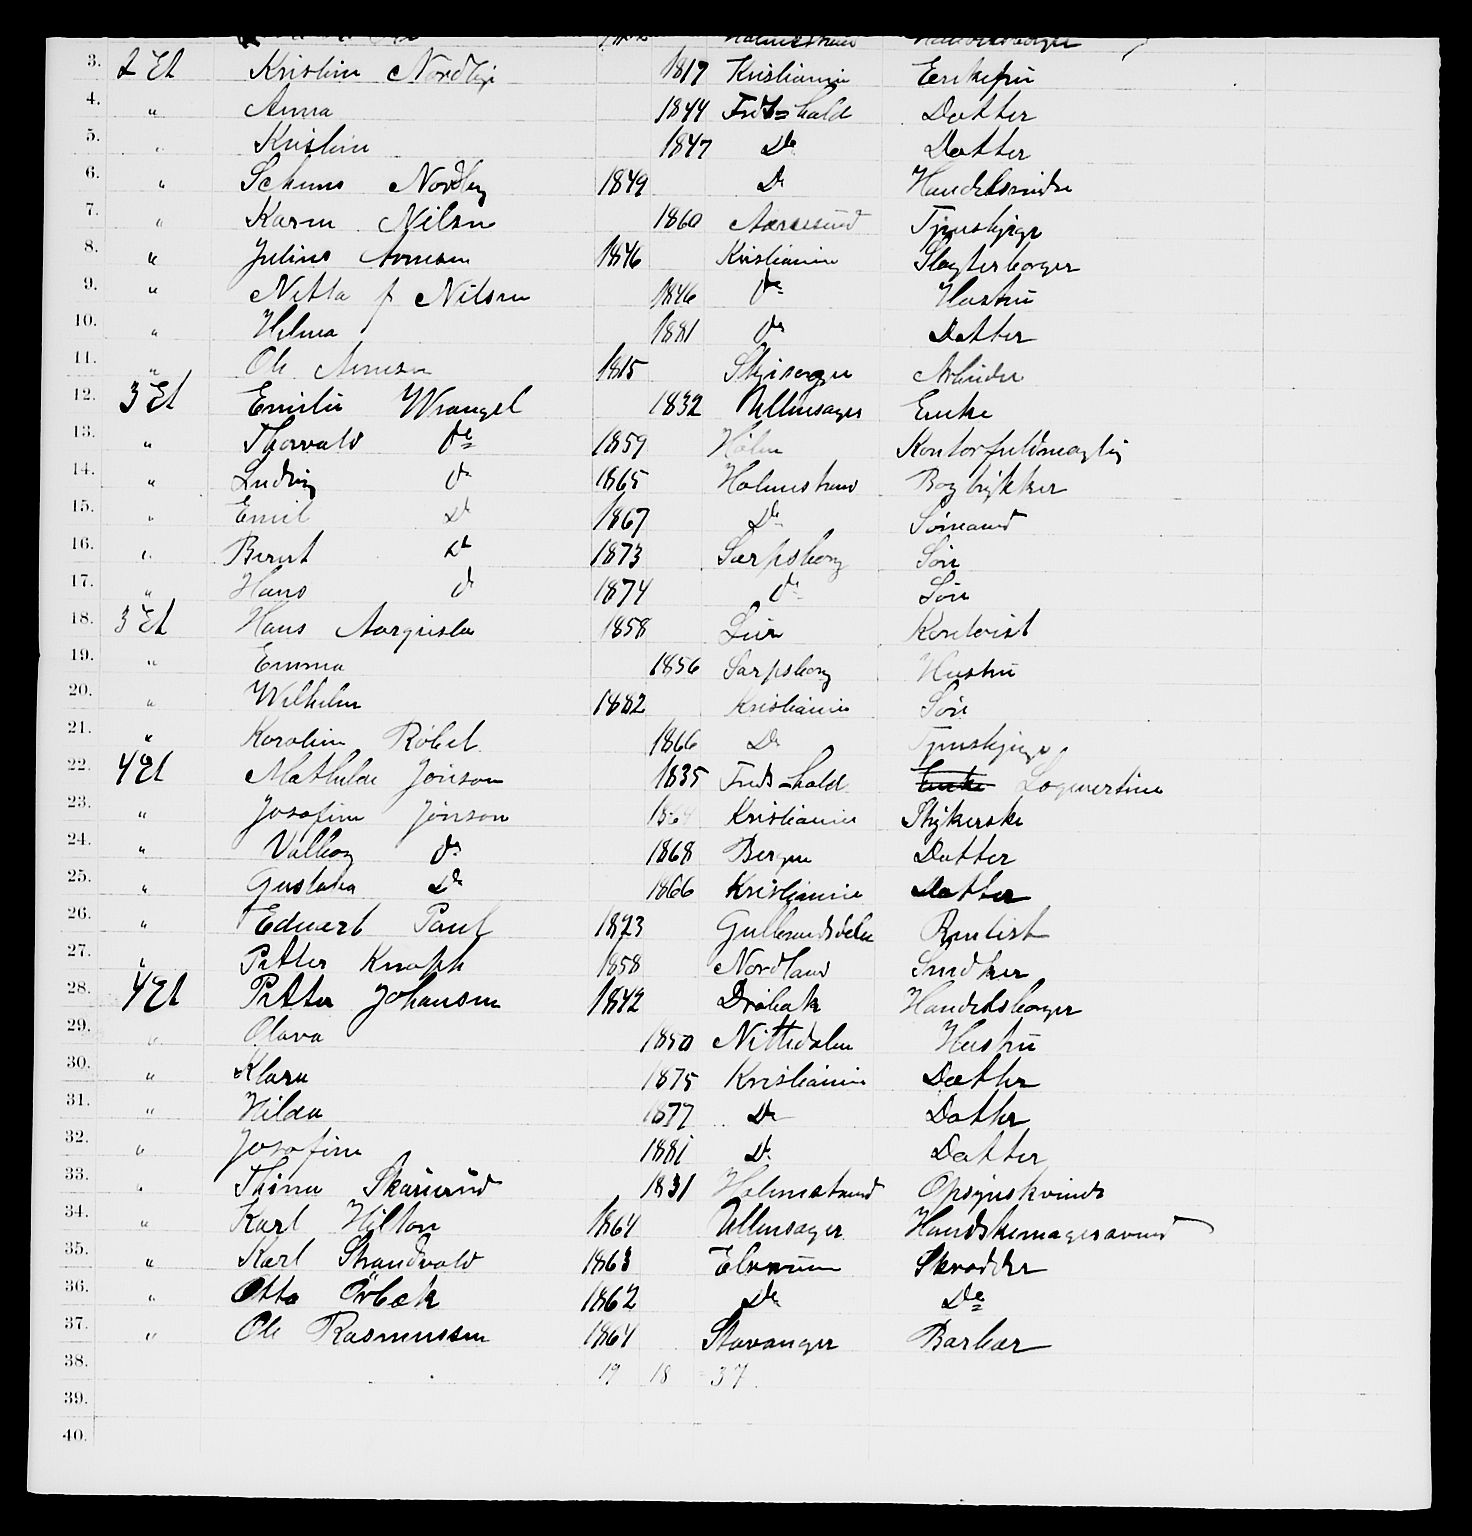 3. 2 Et Kristine Nordby 1817 Kristiania Enkefru
4. " Anna 1844 Fredshald Datter
5. " Kristine 1847 Do Datter
6. " Nordby 1849 Do
7. " Karen Nilsen 1860 Tjenestpige
8. " Julius Arnesen 1846 Kristiania Slagterborger
9. " Netta f Nilsen 1846 Do Hustru
10. " Helma 1881 Do Datter
11. " Ole Arnesen 1815 Arbeider
12. 3 Et Emilie Wrangel 1832 Ullensager Enke
13. " Thorvald Do 1859 Holm Kontorfuldmægtig
14. " Ludvig Do 1865 Holmestrand Bogtrykker
15. " Emil Do 1867 Do Sømand
16. " Bernt Do 1873 Sarpsborg Søn
17. " Hans Do 1874 Do Søn
18. 3 Et Hans 1858 Lier Kontorist
19. " Emma 1856 Sarpsborg Hustru
20. " Wilhelm 1882 Kristiania Søn
21. " Karoline Röbel 1866 Do Tjenstpige
22. 4 Et Mathilde Jonson 1835 Fredshald Enke Logivertine
23. " Josefine Jonson 1864 Kristiania Strykerske
24. " Valborg Do 1868 Bergen Datter
25. " Gustava Do 1866 Kristiania Datter
26. " Eduart Paul 1823 Rentist
27. " Petter Knoph 1858 Nordland Snedker
28. 4 Et Petter Johansen 1842 Drøbak Handelsborger
29. " Olava 1850 Nittedalen Hustru
30. " Klara 1875 Kristiania Datter
31. " Hilda 1877 Do Datter
32. " Josefine 1881 Do Datter
33. " Thina 1831 Holmestrand Opsynskvinde
34. " Karl Hilton 1864 Ullensager Handskemagersvend
35. " Karl Strandvold 1863 Elverum Skrædder
36. " Otto Örbæk 1862 Do Do
37. " Ole Rasmussen 1864 Stavanger Barber
38. 19 18 37
39.
40.